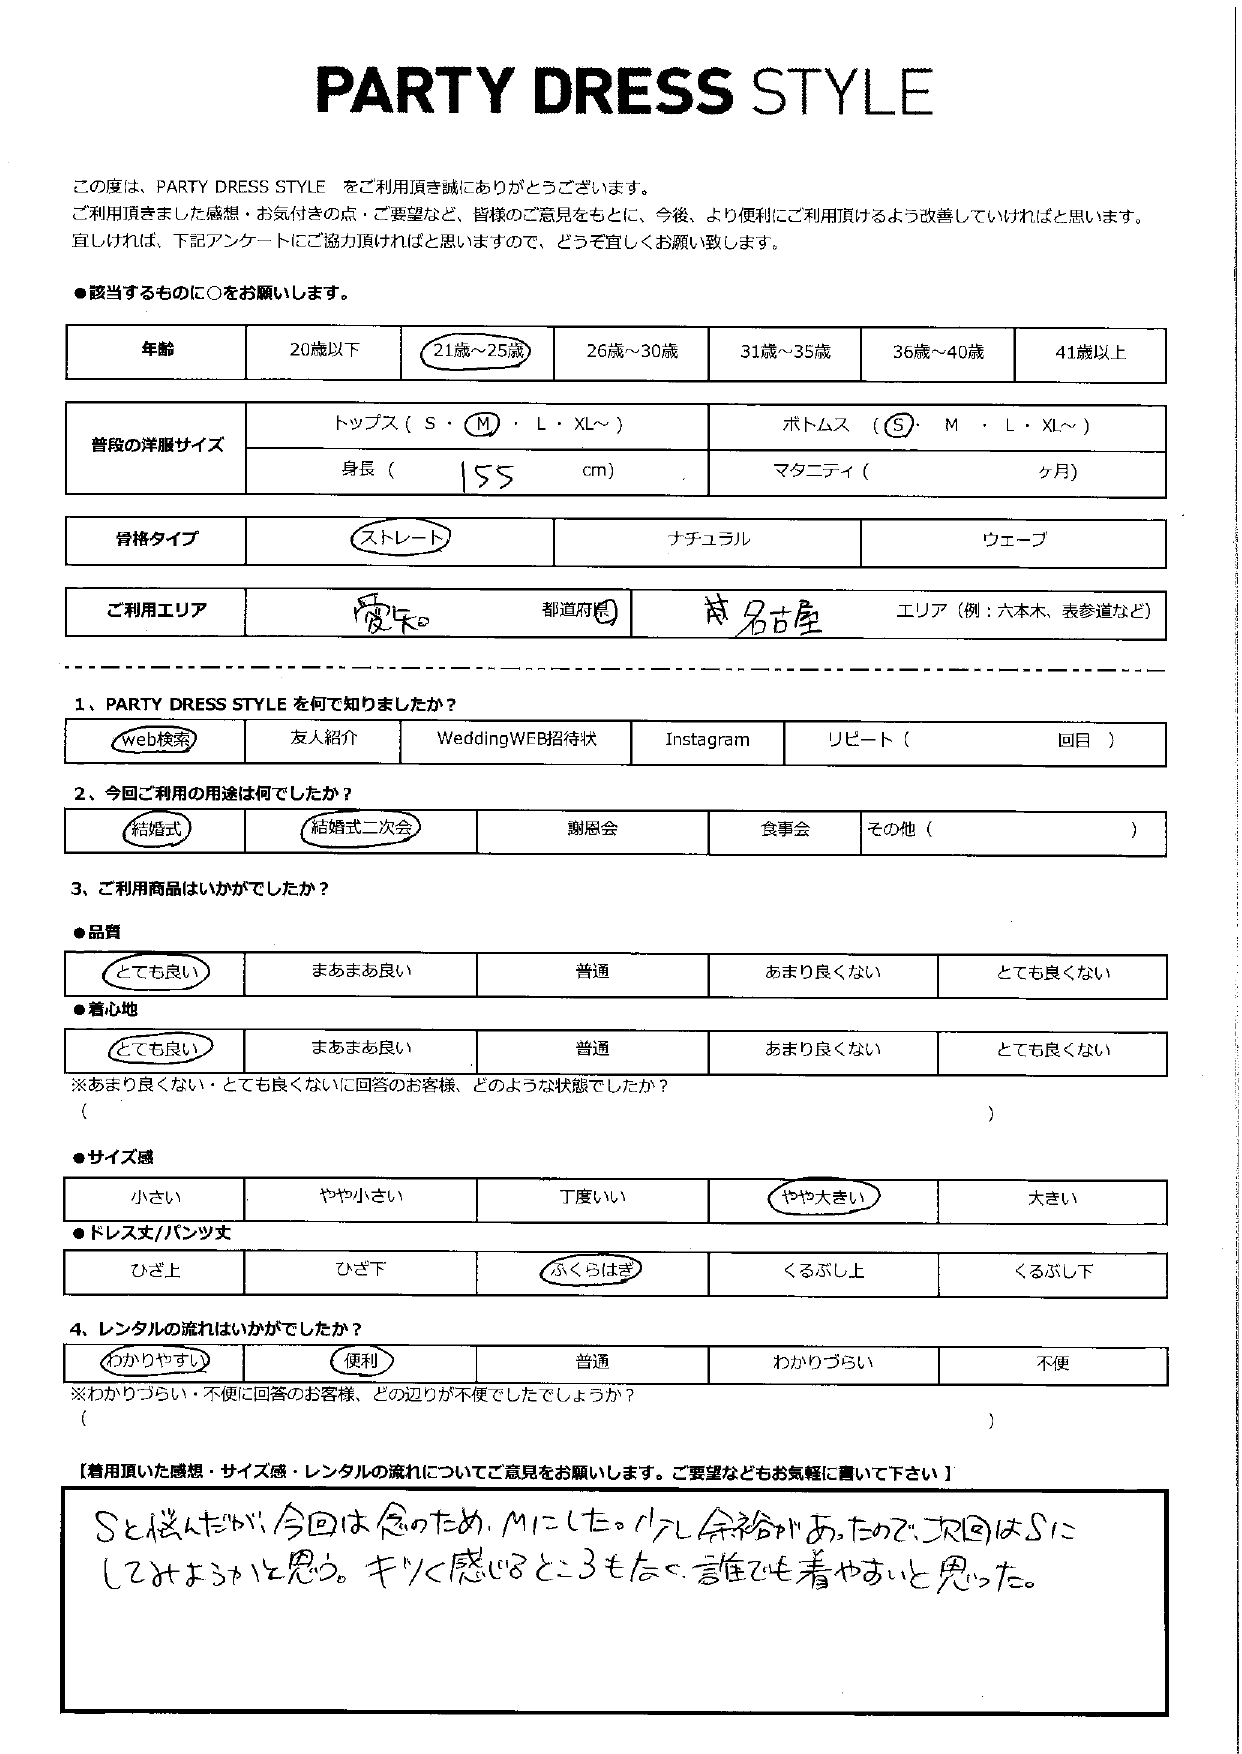 PARTY DRESS STYLE
この度は、PARTY DRESS STYLE をご利用頂き誠にありがとうございます。
ご利用頂きました感想・お気付きの点・ご要望など、皆様のご意見をもとに、今後、より便利にご利用頂けるよう改善していければと思います。
宜しければ、下記アンケートにご協力頂ければと思いますので、どうぞ宜しくお願い致します。
●該当するものに○をお願いします。
年齢 20歳以下 21歳～25歳 26歳～30歳 31歳～35歳 36歳～40歳 41歳以上
普段の洋服サイズ トップス ( S ・ M ・ L ・ XL～ ) ボトムス ( S ・ M ・ L ・ XL～ )
身長 ( 155 cm) マタニティ ( ヶ月)
骨格タイプ ストレート ナチュラル ウェーブ
ご利用エリア 愛知 都道府県 名古屋 エリア（例：六本木、表参道など）
1、PARTY DRESS STYLE を何で知りましたか？
web検索 友人紹介 WeddingWEB招待状 Instagram リピート ( 回目 )
2、今回ご利用の用途は何でしたか？
結婚式 結婚式二次会 謝恩会 食事会 その他 ( )
3、ご利用商品はいかがでしたか？
●品質
とても良い まあまあ良い 普通 あまり良くない とても良くない
●着心地
とても良い まあまあ良い 普通 あまり良くない とても良くない
※あまり良くない・とても良くないに回答のお客様、どのような状態でしたか？
( )
●サイズ感
小さい やや小さい 丁度いい やや大きい 大きい
●ドレス丈/パンツ丈
ひざ上 ひざ下 ふくらはぎ くるぶし上 くるぶし下
4、レンタルの流れはいかがでしたか？
わかりやすい 便利 普通 わかりづらい 不便
※わかりづらい・不便に回答のお客様、どの辺りが不便でしたでしょうか？
( )
【着用頂いた感想・サイズ感・レンタルの流れについてご意見をお願いします。ご要望などもお気軽に書いて下さい】
Sと悩んだが、今回は念のため、Mにした。少し余裕があったので、次回はSに
してみようかと思う。キツく感じるところもなく、誰でも着やすいと思った。